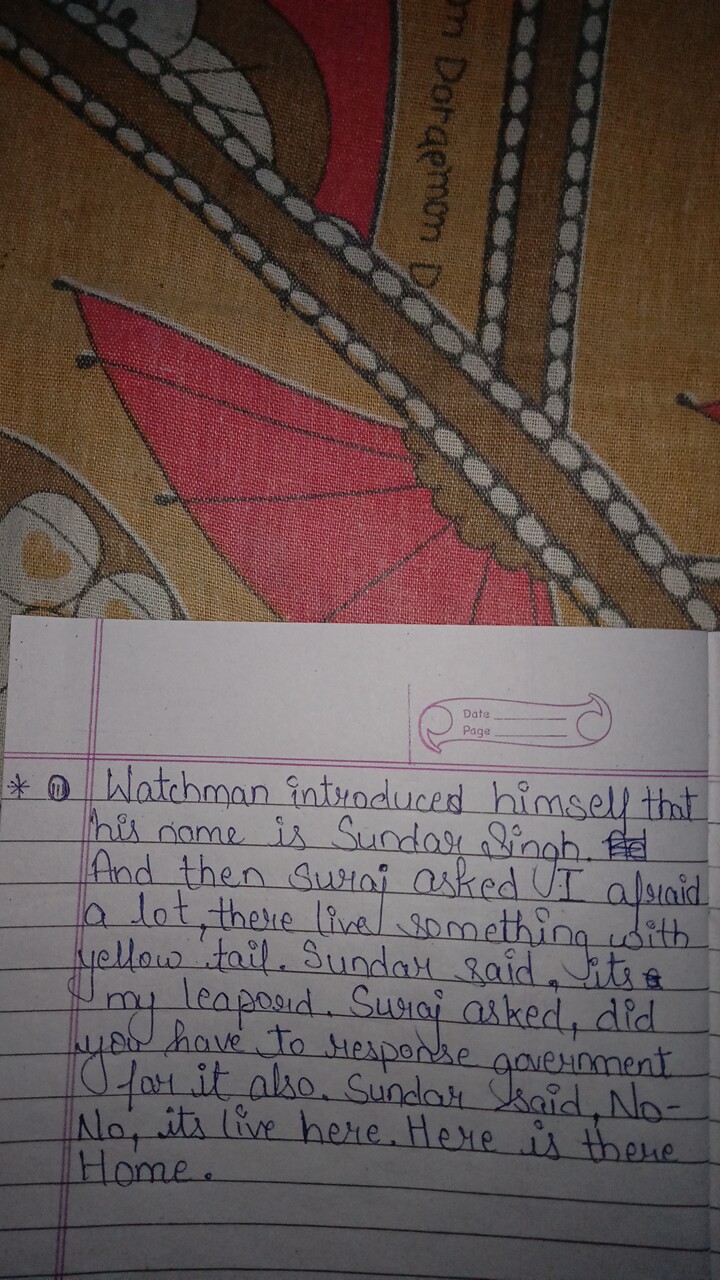 m Doraemon D
Date
Page
* (11) Watchman introduced himself that
his name is Sundar Singh.
And then Suraj asked I afraid
a lot, there live something with
yellow tail. Sundar said, its
my leapord. Suraj asked, did
you have to response government
for it also. Sundar said, No-
No, its live here. Here is there
Home.